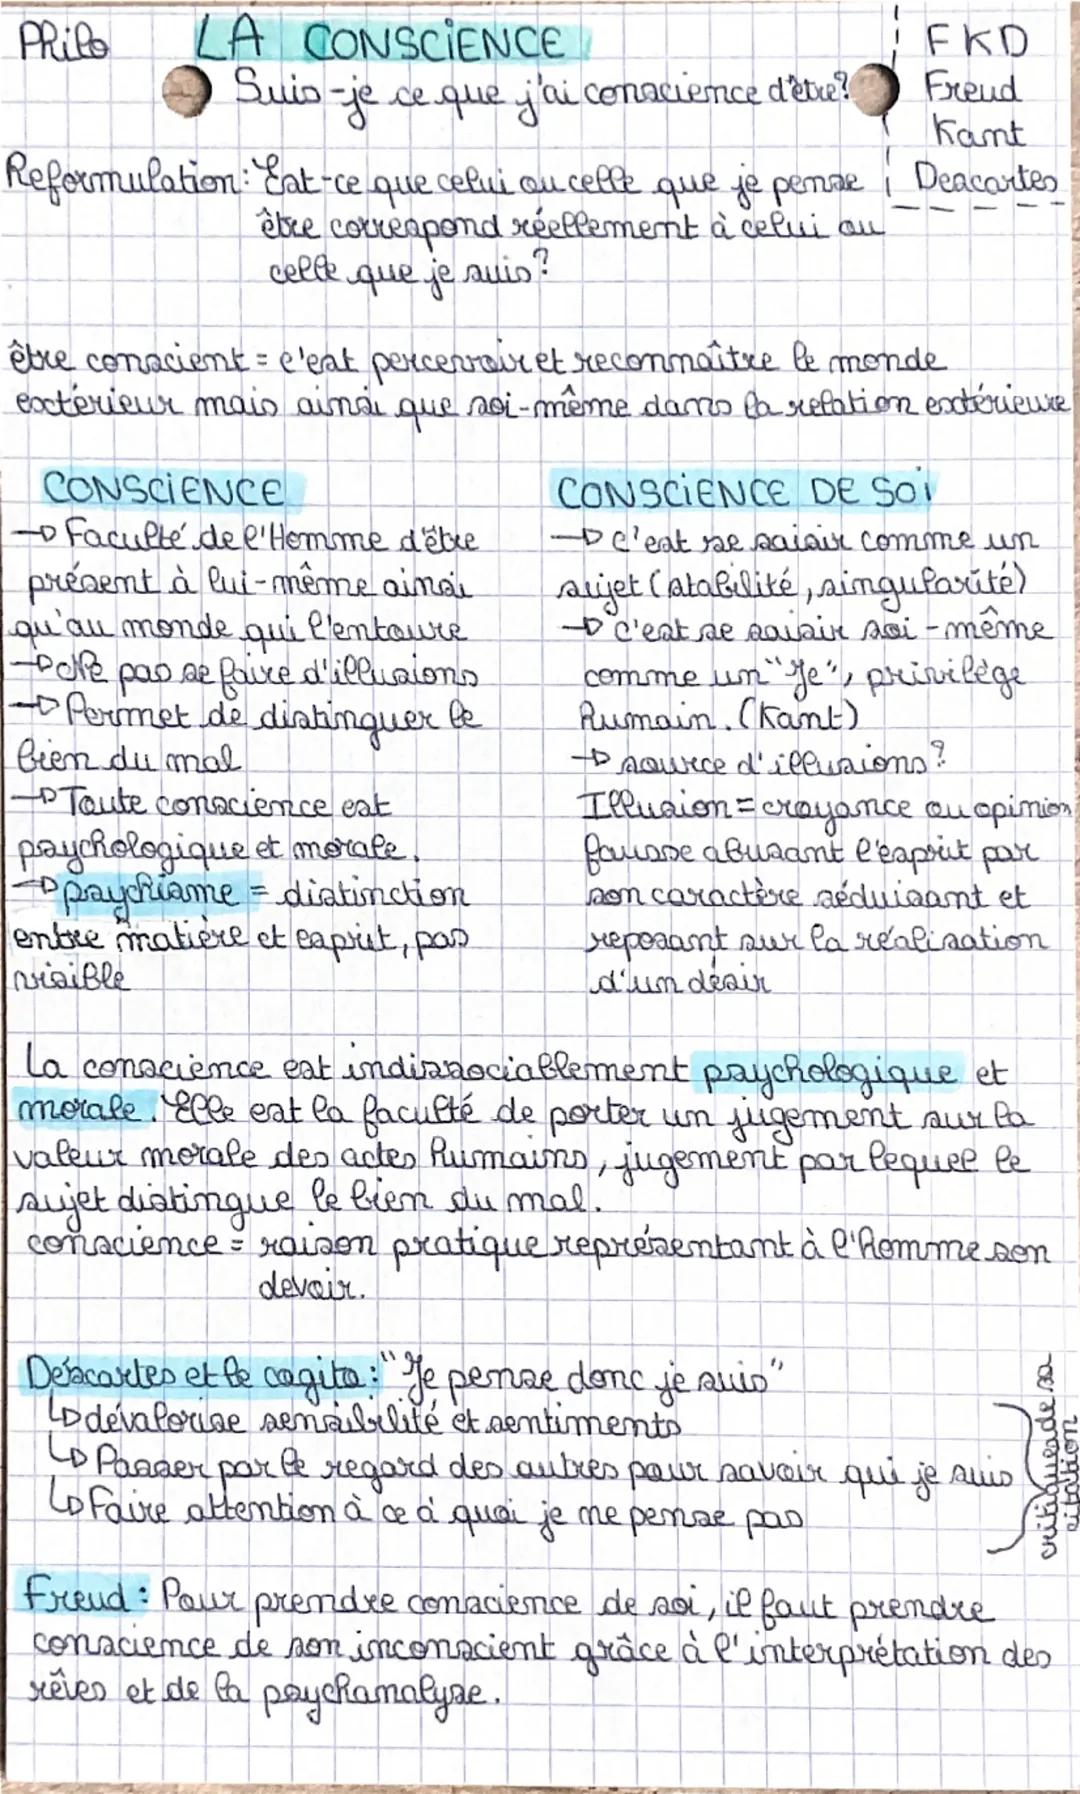 PHilo
LA CONSCIENCE
Suis-je ce que j'ai conscience d'être?
FKD
Freud
Kant
Descartes
Reformulation: Est-ce que celui ou celle que je pense
être correspond réellement à celui ou
celle que je suis?
être conscient = c'est percevoir et reconnaître le monde
extérieur mais ainsi que soi-même dans la relation extérieure
CONSCIENCE
→ Faculté de l'Homme d'être
présent à lui-même ainsi
qu'au monde qui l'entoure
→ Ne pas se faire d'illusions
→ Permet de distinguer le
bien du mal
→ Toute conscience est
psychologique et morale.
→ psychisme = distinction
entre matière et esprit, pas
visible
CONSCIENCE DE SOI
→ C'est se saisir comme un
sujet (stabilité, singularité)
→ c'est se saisir soi-même
comme un "Je", privilège
humain. (Kant)
→ source d'illusions?
Illusion = croyance ou opinion
fausse abusant l'esprit par
son caractère séduisant et
reposant sur la réalisation
d'un désir
La conscience est indissociablement psychologique et
morale. Elle est la faculté de porter un jugement sur la
valeur morale des actes humains, jugement par lequel le
sujet distingue le bien du mal.
conscience = raison pratique représentant à l'homme son
devoir.
Descartes et le cogito: "Je pense donc je suis"
↳ dévalorise sensibilité et sentiments
↳ Passer par le regard des autres pour savoir qui je suis
↳ Faire attention à ce à quoi je ne pense pas
critique de sa
citation
Freud: Pour prendre conscience de soi, il faut prendre
conscience de son inconscient grâce à l'interprétation des
rêves et de la psychanalyse.